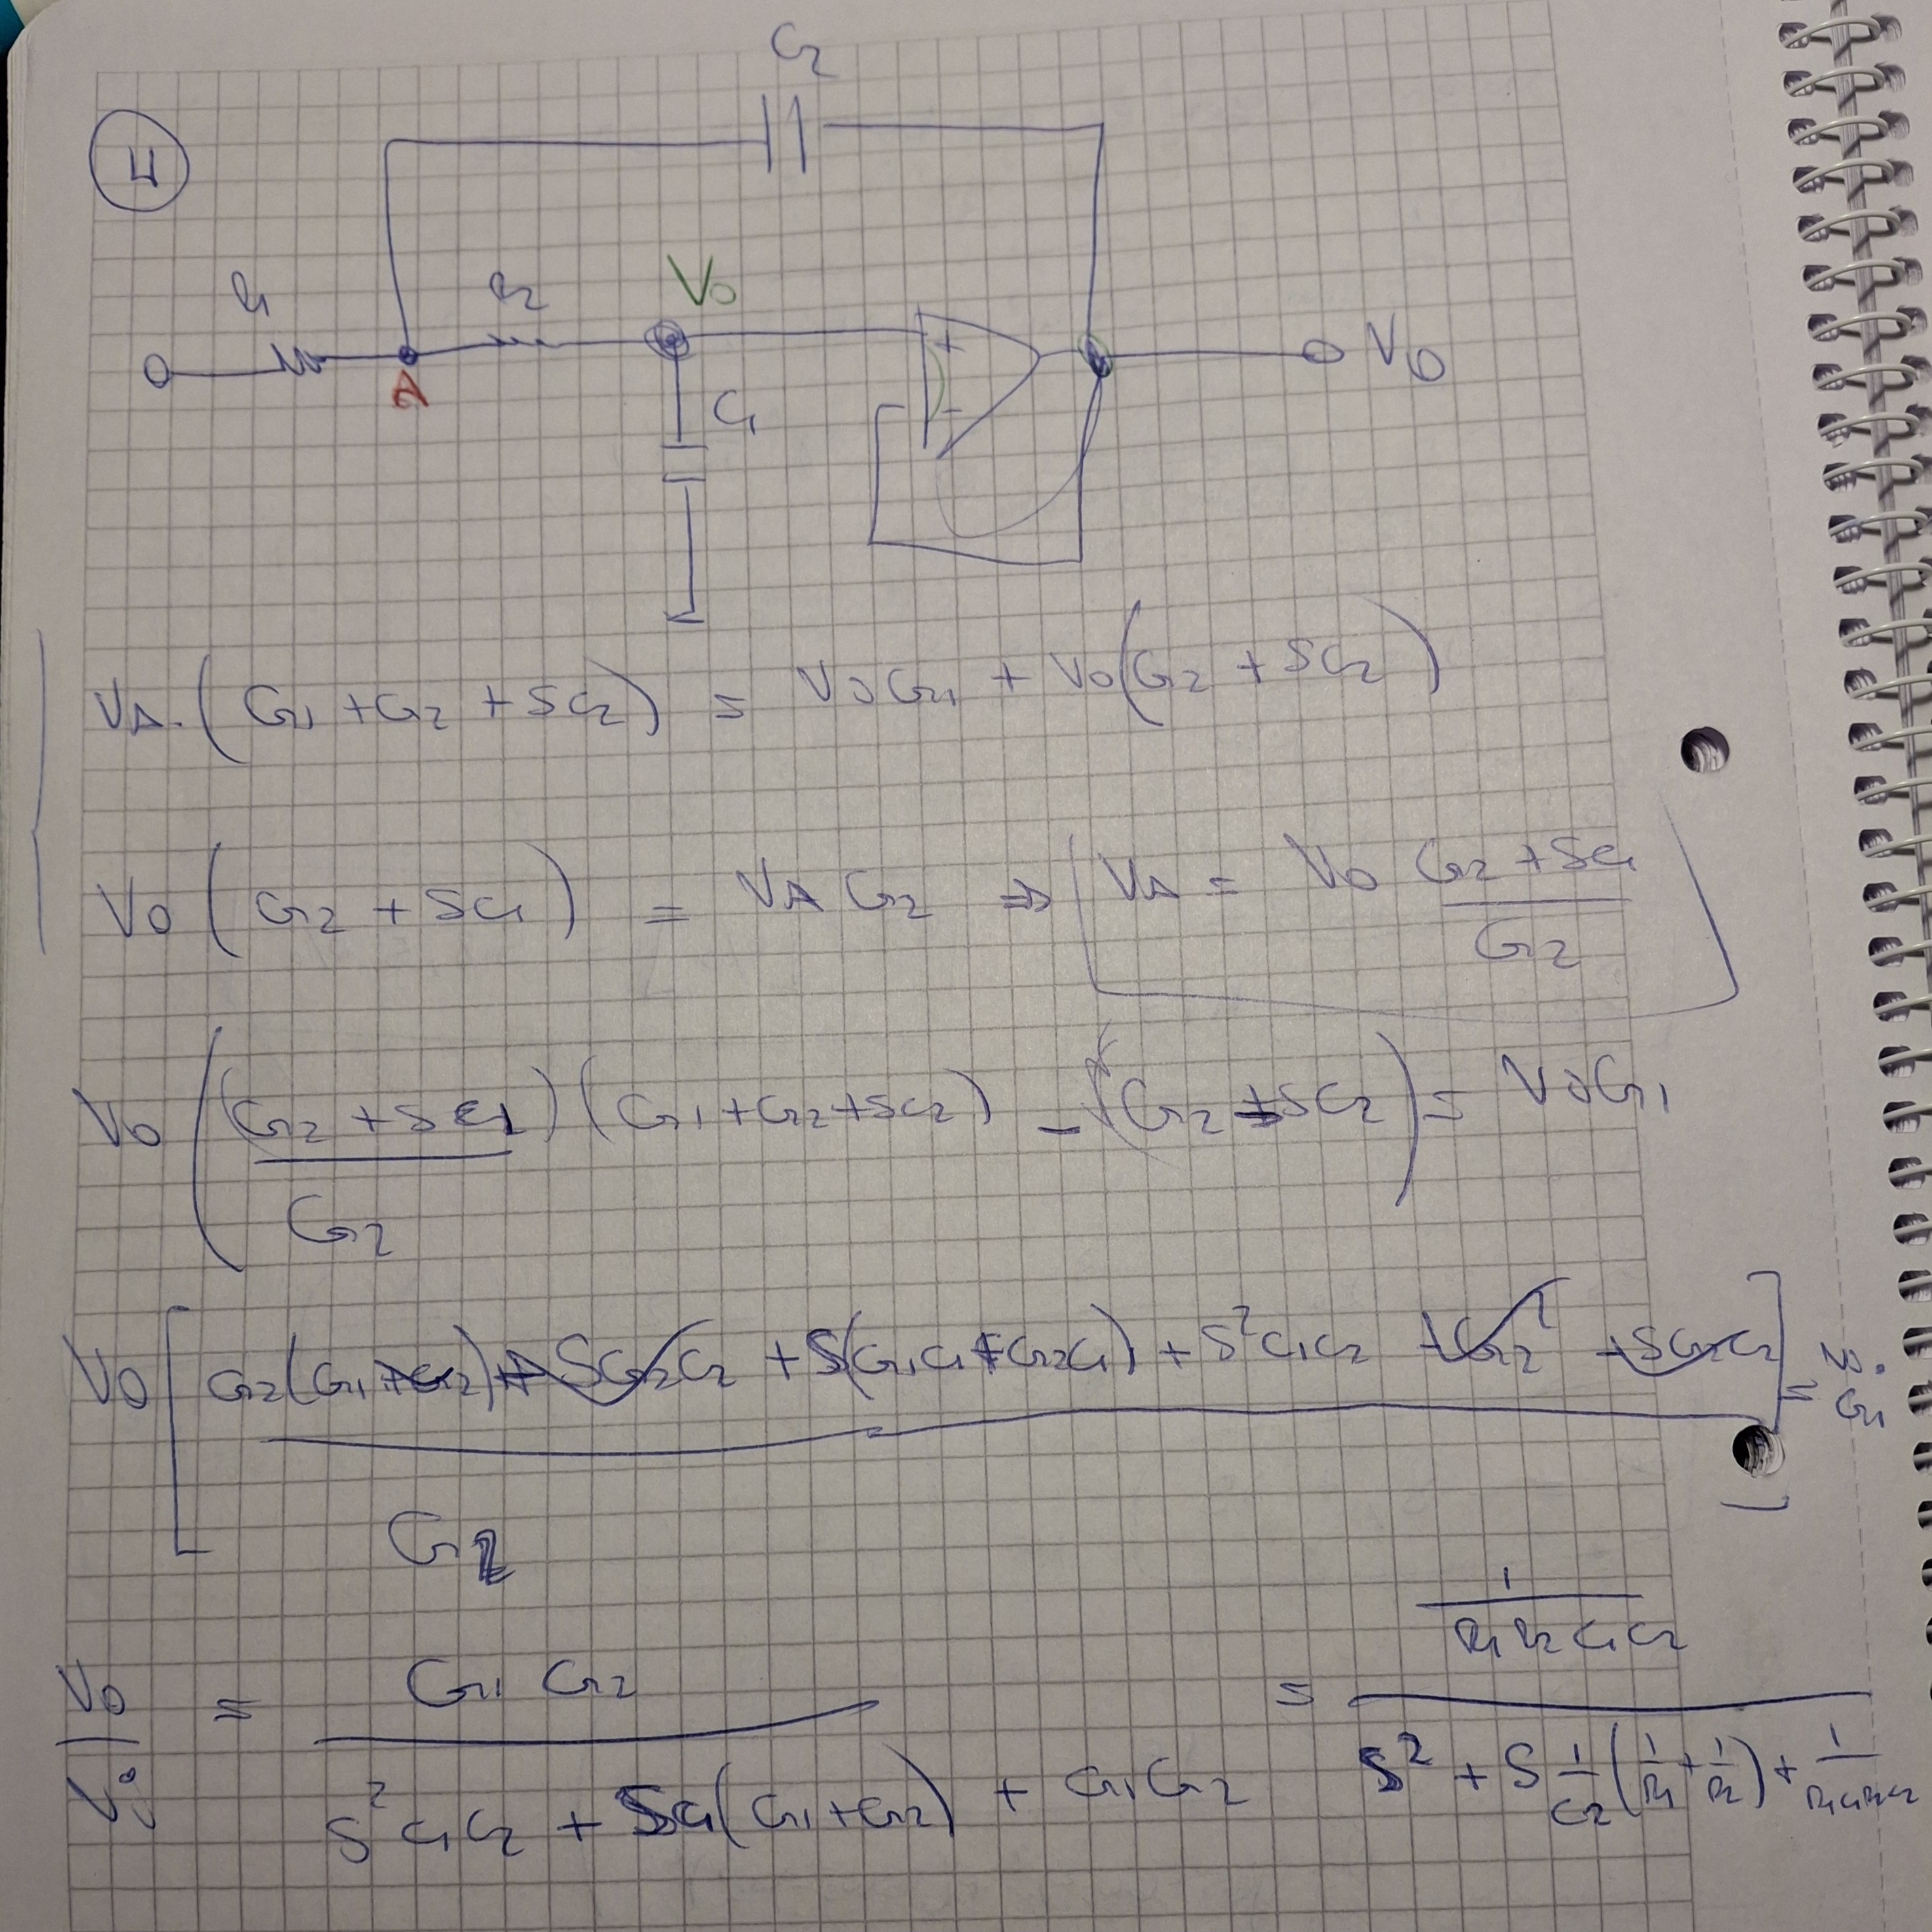 C2
4
R1 R2 V0
A C1 + - V0
VA.(G1 + G2 + SC2) = VJG1 + V0(G2 + SC2)
V0(G2 + SC1) = VA G2 ⇒ VA = V0 (G2 + SC1)/G2
V0((G2 + SC1)/G2 (G1 + G2 + SC2) - (G2 + SC2)) = VJG1
V0[(G2(G1 + G2) + SG2C2 + S(G1C1 + G2C1) + S²C1C2 - G2² - SG2C2)/G2] = Vi G1
V0/Vi = G1 G2/(S²C1C2 + SC1(G1 + G2) + G1G2) = (1/(R1R2C1C2))/(S² + S 1/C2 (1/R1 + 1/R2) + 1/(R1C1R2C2))